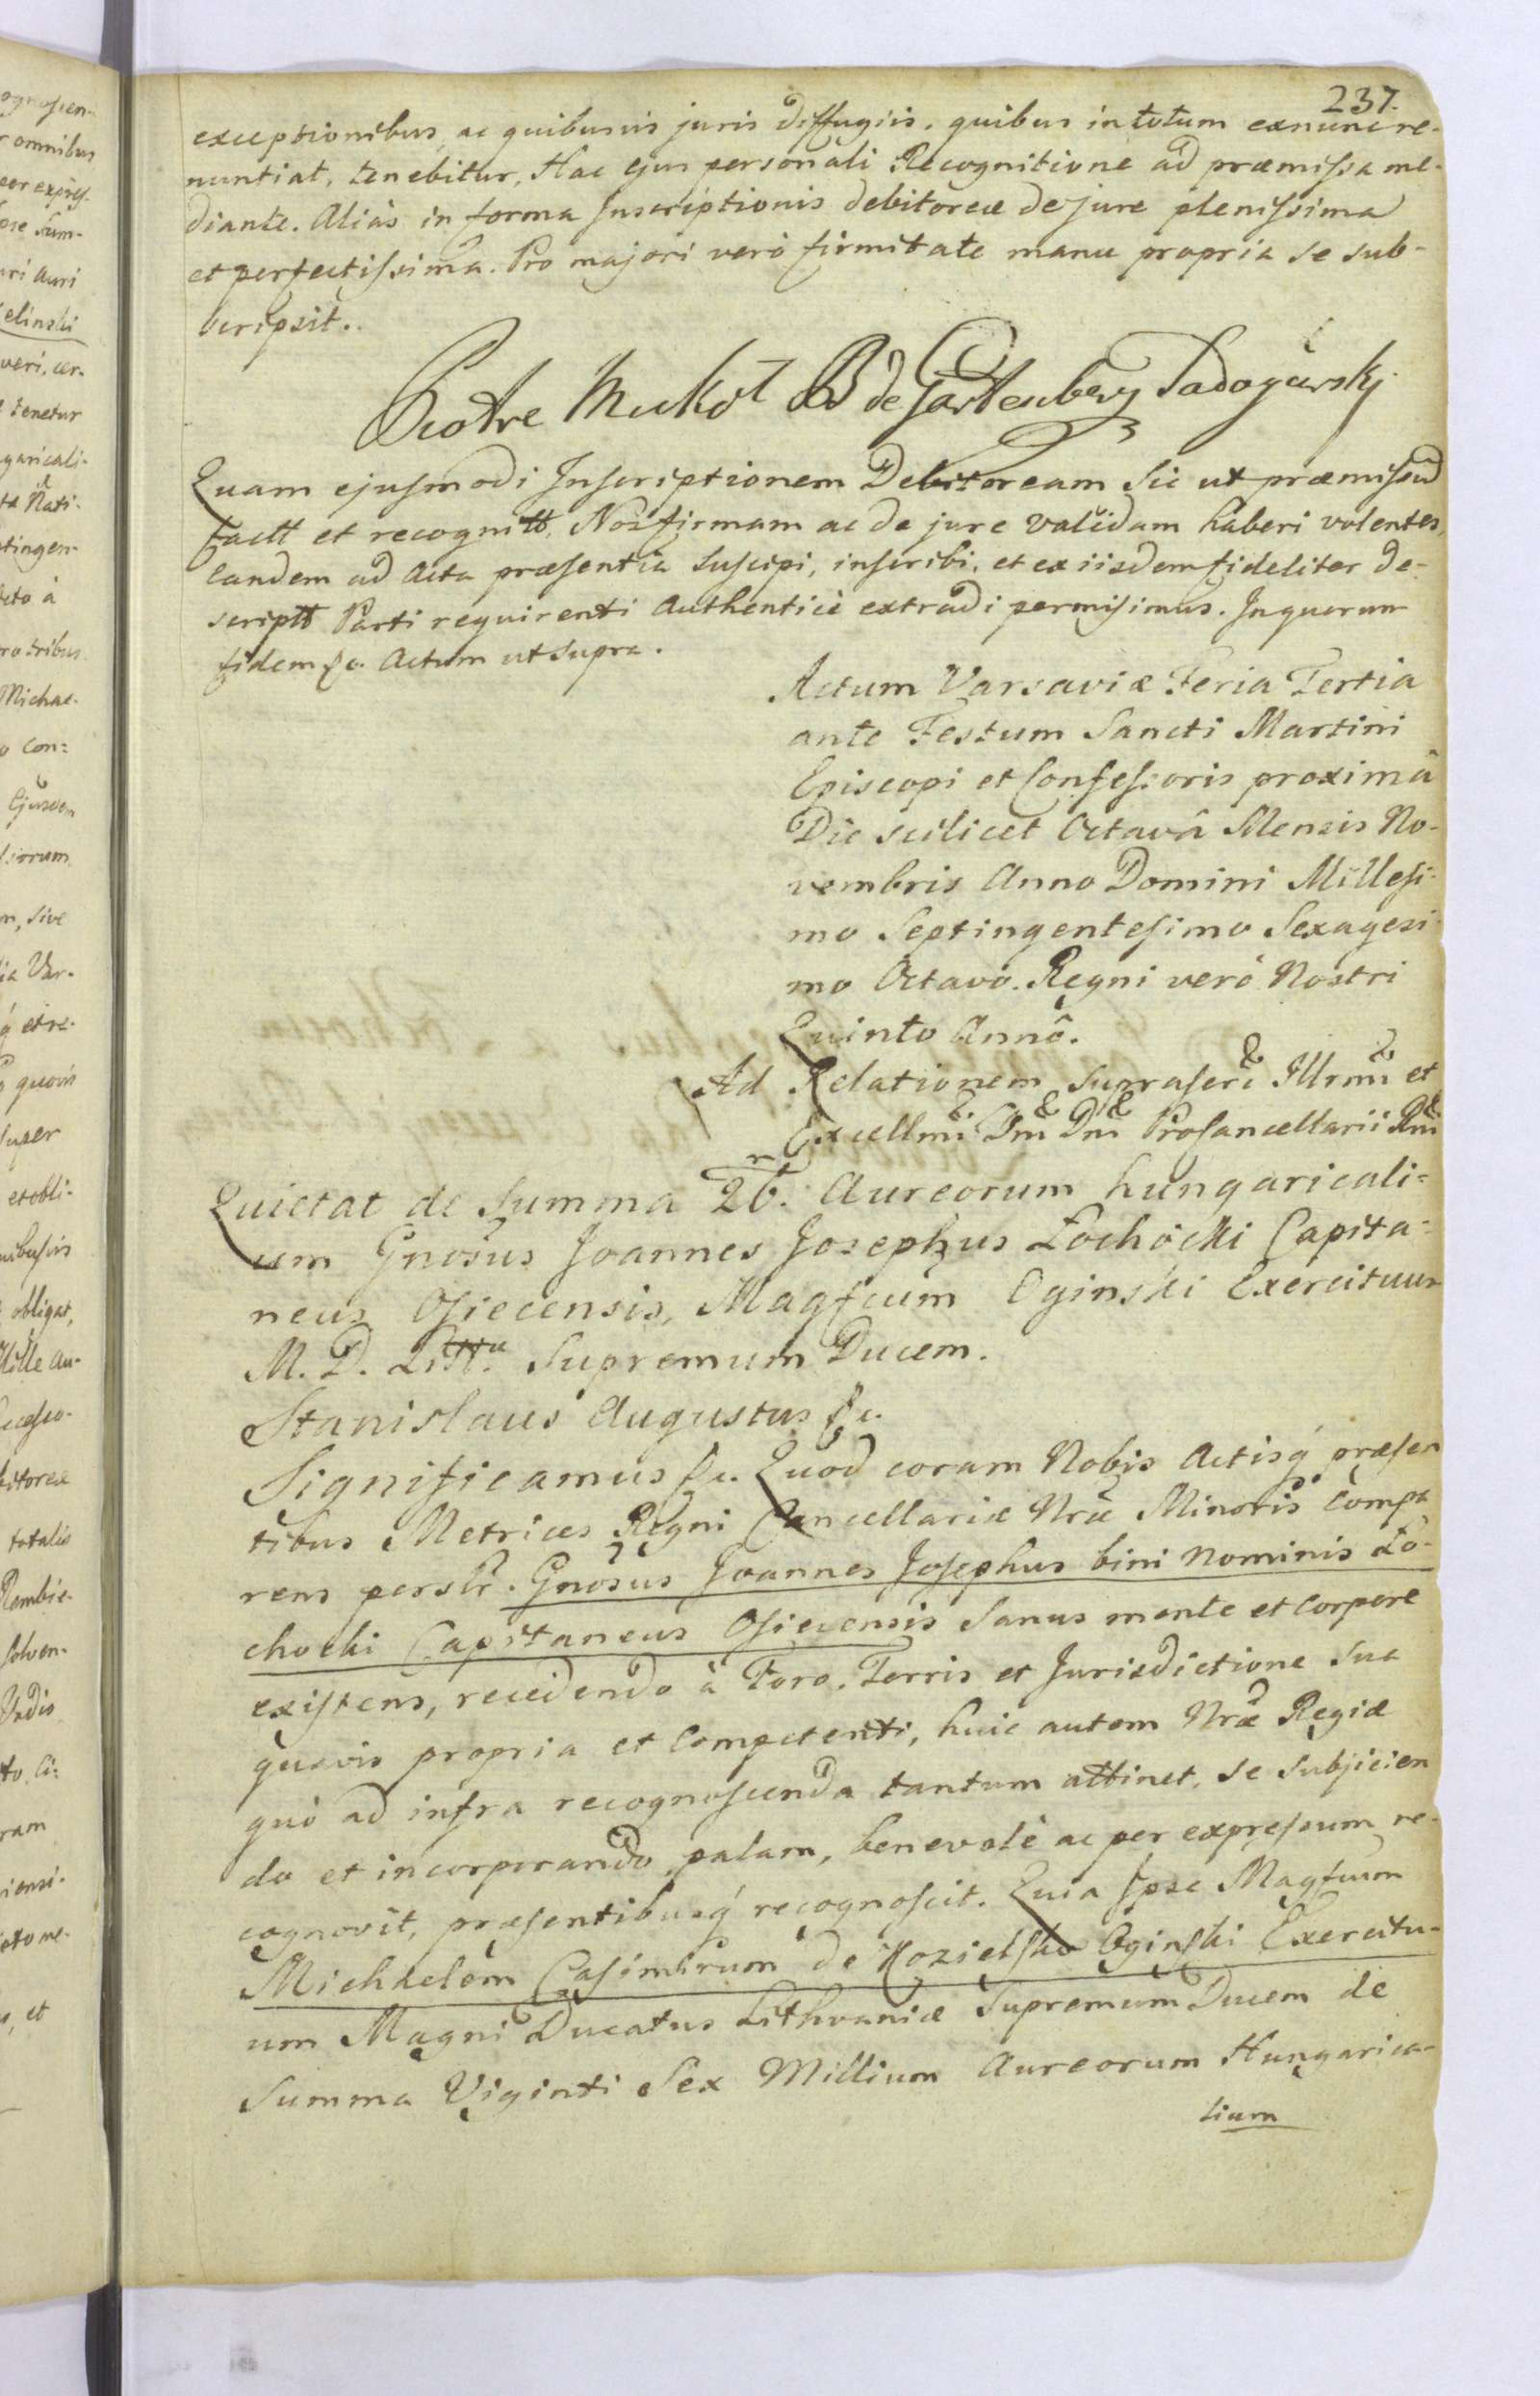 237.
exceptionibus, ac quibusvis juris diffugiis, quibus in totum exnunc re-
nuntiat, tenebitur, Hac ejus personali Recognitione ad præmissa me-
diante. Aliàs in forma Inscriptionis debitoreæ de jure plenissima
et perfectissima. Pro majori verò firmitate manu propria se sub-
scripsit.
Piotre B de Gartenberg Sadogursky
Quam ejusmodi Inscriptionem Debitoream sic ut præmissũ
factt et recognitt, Nos firmam ac de jure validam haberi volentes,
eandem ad Acta præsentia suscipi, inscribi, et ex iisdem fideliter de-
scriptt Parti requirenti Authenticè extradi permisimus. In quorum
fidem &c. Actum ut supra.
Actum Varsaviæ Feria Tertia
ante Festum Sancti Martini
Episcopi et Confessoris proximâ
Die scilicet Octavâ Mensis No-
vembris Anno Domini Millesi-
mo Septingentesimo Sexagesi-
mo Octavo. Regni verò Nostri
Quinto Annô.
Ad Relationem suprascri Illrmi et
Excellmi Dni Dni ProCancellarii Rni
Quietat de Summa 26. Aureorum hungaricali-
um Gnosus Joannes Josephus Łochocki Capita-
neus Osiecensis, Magfcum Oginski Exercituum
M. D. Litt. Supremum Ducem.
Stanislaus Augustus &c.
Significamus &c. Quod coram Nobis Actisq́ præsen
tibus Metrices Regni Cancellariæ Nræ Minoris compa
rens perslr. Gnosus Joannes Josephus bini nominis Ło-
chocki Capitaneus Osiecensis Sanus mente et corpore
existens, recedendo à Foro, Terris et Jurisdictione sua
quavis propria et Competenti, huic autem Nræ Regiæ
quò ad infra recognoscenda tantum attinet, se subjicien
do et incorporando, palam, benevolè ac per expressum re-
cognovit, præsentibusq́ recognoscit. Quia Ipse Magfcum
Michaelem Casimirum de Kozielsko Oginski Exercitu-
um Magni Ducatus Lithvaniæ Supremum Ducem de
Summa Viginti Sex Millium Aureorum Hungarica-
lium